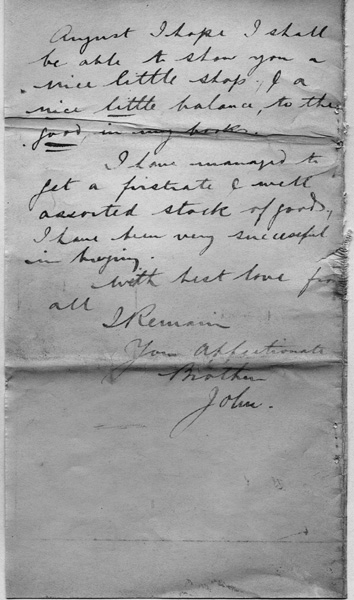 August I hope I shall
be able to show you a
nice little shop, & a
nice little balance, to the
good, in my books.
I have managed to
get a firstrate & well
assorted stock of goods,
I have been very successful
in buying.
With best love from
all
I Remain
Your Affectionate
Brother
John.